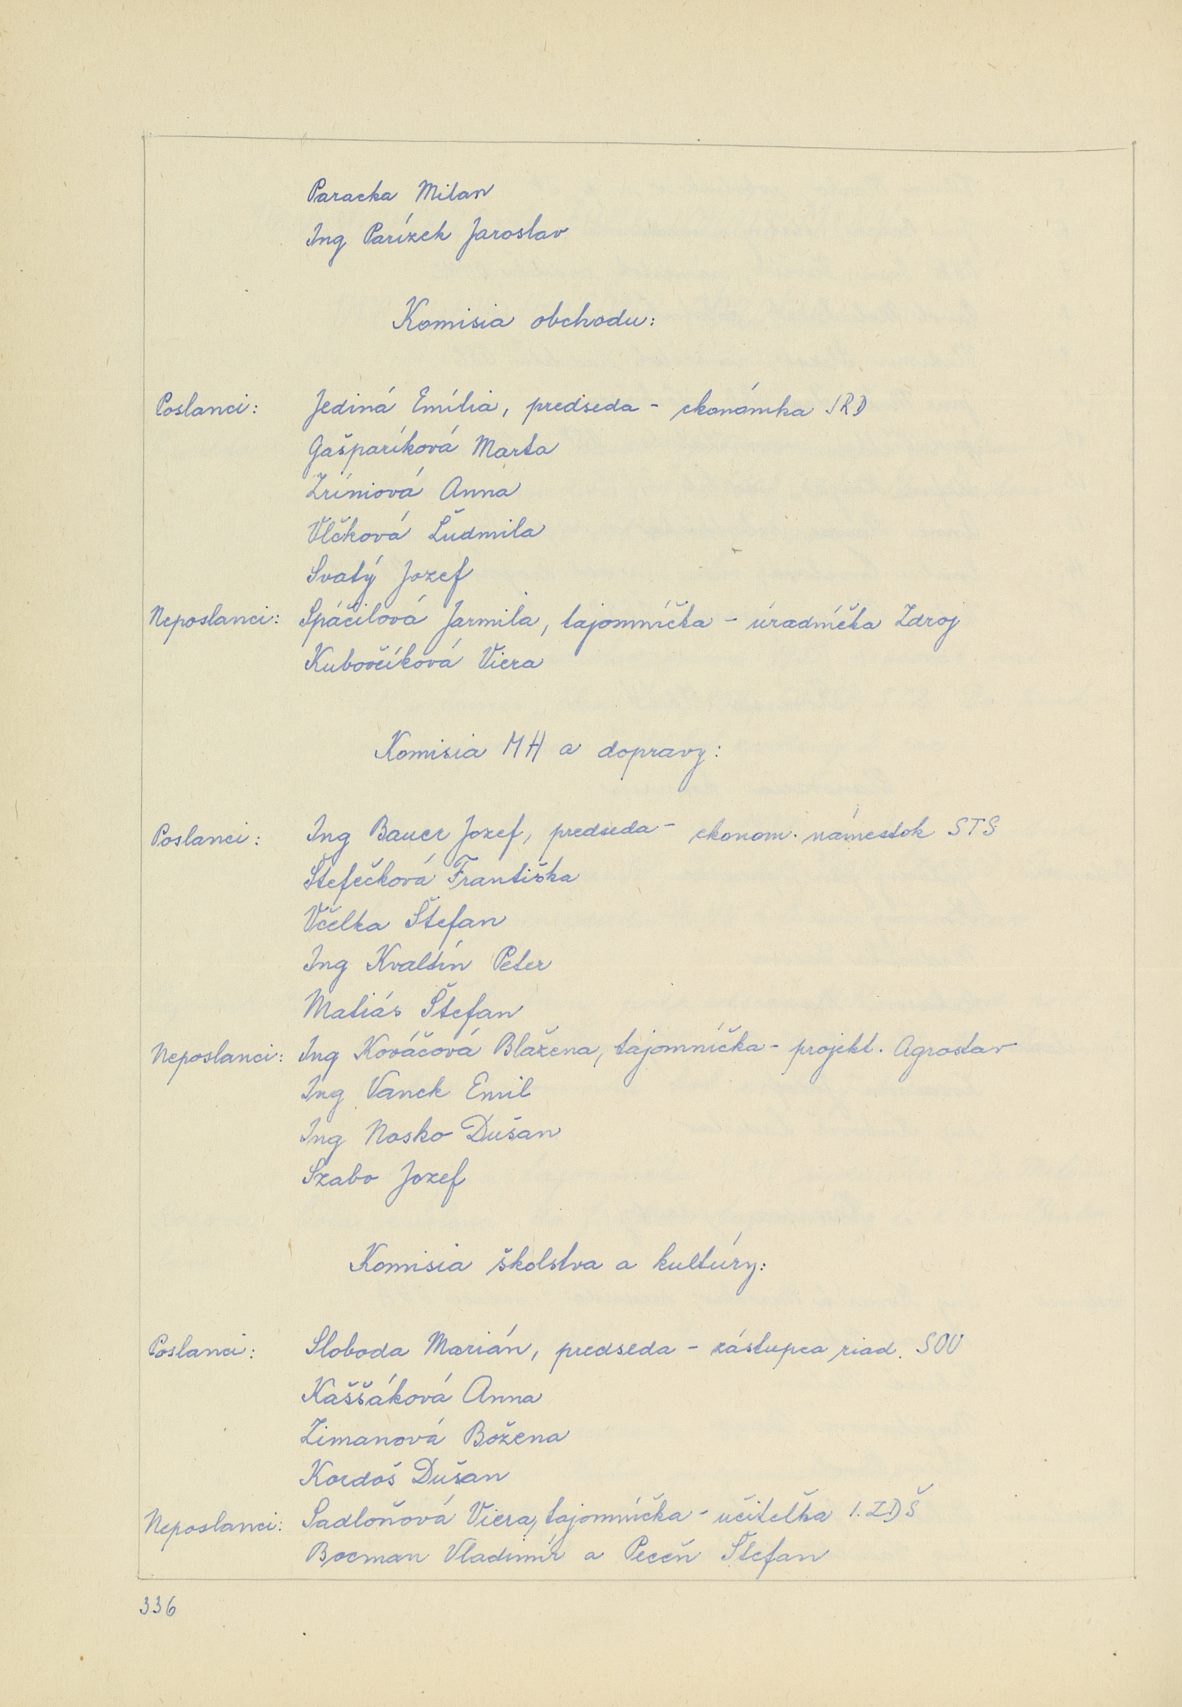 Paracka Milan
Ing Parízek Jaroslav
Komisia obchodu:
Poslanci: Jediná Emília, predseda - ekonómka JRD
Gašparíková Marta
Zríniová Anna
Vlčková Ľudmila
Svatý Jozef
Neposlanci: Spáčilová Jarmila, tajomníčka - úradníčka Zdroj
Kubovčíková Viera
Komisia MH a dopravy:
Poslanci: Ing Bauer Jozef, predseda - ekonom. námestok STS
Štefečková Františka
Včelka Štefan
Ing Kvaltín Peter
Matiás Štefan
Neposlanci: Ing Kováčová Blažena, tajomníčka - projekt. Agrostav
Ing Vanek Emil
Ing Nosko Dušan
Szabo Jozef
Komisia školstva a kultúry:
Poslanci: Sloboda Marián, predseda - zástupca riad. SOU
Kaššáková Anna
Zimanová Božena
Kordoš Dušan
Neposlanci: Sadloňová Viera, tajomníčka - učiteľka 1. ZDŠ
Bocman Vladimír a Peceň Štefan
336